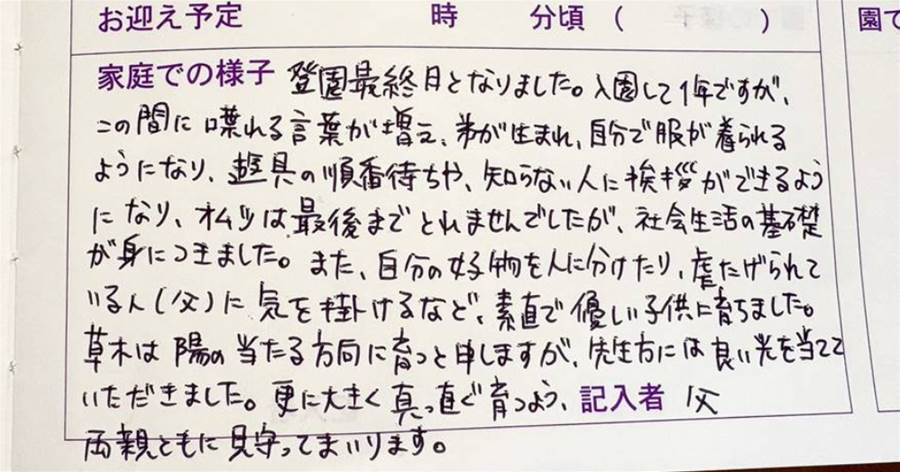 お迎え予定　時　分頃（　）
園で
家庭での様子 登園最終月となりました。入園して1年ですが、
この間に喋れる言葉が増え、弟が生まれ、自分で服が着られる
ようになり、遊具の順番待ちや、知らない人に挨拶ができるよう
になり、オムツは最後までとれませんでしたが、社会生活の基礎
が身につきました。また、自分の好物を人に分けたり、虐たげられて
いる人（父）に気を掛けるなど、素直で優しい子供に育ちました。
草木は陽の当たる方向に育つと申しますが、先生方には良い光を当てて
いただきました。更に大きく真っ直ぐ育つよう、記入者 父
両親ともに見守ってまいります。